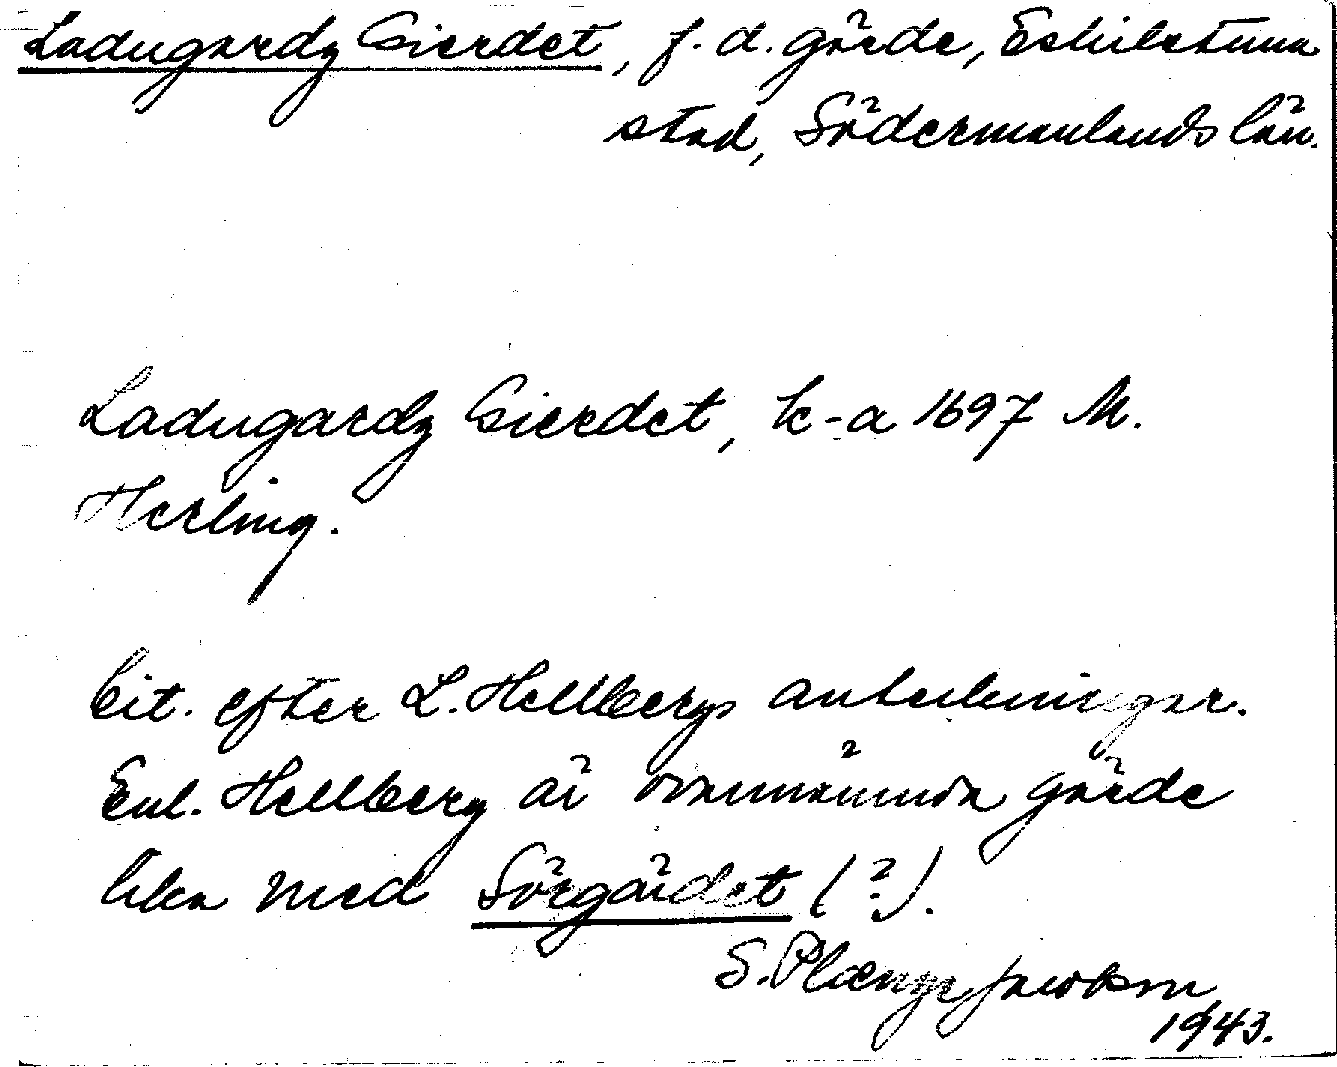 Ladugardz Gierdet, f.d. gärde, Eskilstuna
stad, Södermanlands län.
Ladugardz Gierdet, k-a 1697 M.
Herling.
Cit. efter L. Hellbergs anteckningar.
Enl. Hellberg är ovannämnda gärde
lika med Sörgärdet (?).
S. Plænge Jacobson
1943.